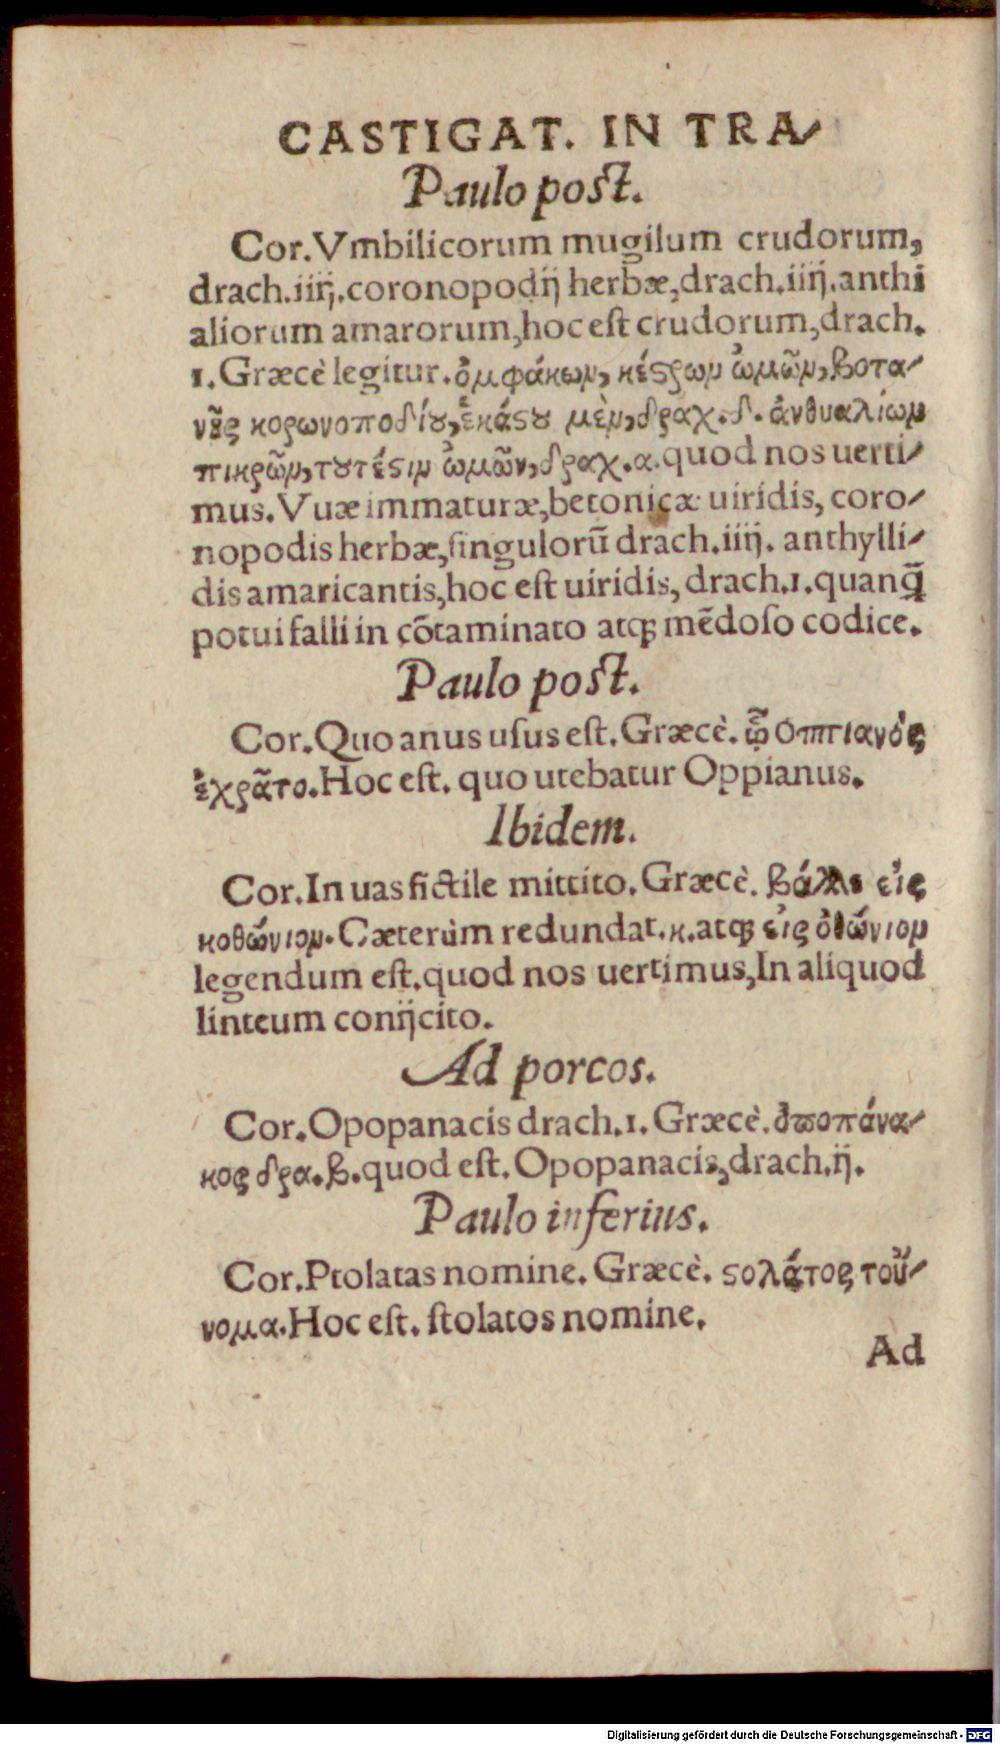 CASTIGAT. IN TRA/
Paulo post.
Cor. Vmbilicorum mugilum crudorum,
drach.iiij.coronopodij herbæ,drach.iiij.anthi
aliorum amarorum,hoc est crudorum,drach.
1.Græcè legitur.ὀμφάκων, κέστρων ὠμῶν, βοτα/
νῆς κορωνοποδίου,ἑκάστου μὲν,δραχ.δ. ἀνθυαλίων
πικρῶν,τουτέστιν ὠμῶν,δραχ.α.quod nos uerti/
mus. Vuæ immaturæ,betonicæ uiridis, coro/
nopodis herbæ,singulorũ drach.iiij. anthylli/
dis amaricantis,hoc est uiridis, drach.1.quanq̃
potui falli in cõtaminato atq; mẽdoso codice.
Paulo post.
Cor.Quo anus usus est. Græcè. ᾧ Οππιανός
ἐχρᾶτο.Hoc est. quo utebatur Oppianus.
Ibidem.
Cor.In uas fictile mittito. Græcè. βάλλε εἰς
κοθώνιον. Cæterùm redundat.κ.atq; εἰς ὀθώνιον
legendum est.quod nos uertimus,In aliquod
linteum conijcito.
Ad porcos.
Cor.Opopanacis drach.1. Græcè. ὀποπάνα/
κος δρα.β.quod est. Opopanacis,drach.ij.
Paulo inferius.
Cor.Ptolatas nomine. Græcè. στολάτος τοὔ/
νομα.Hoc est. stolatos nomine.
Ad
Digitalisierung gefördert durch die Deutsche Forschungsgemeinschaft - DFG